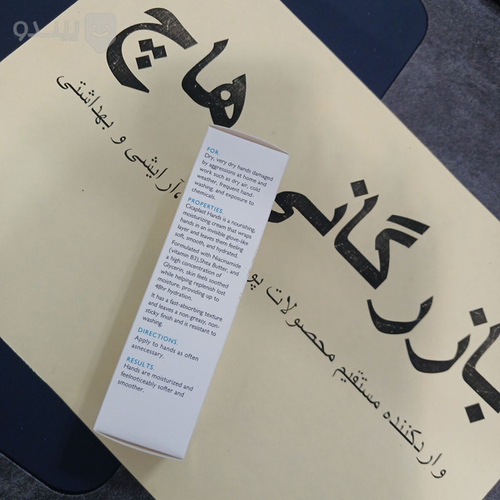 بیسدو
بازرگانی هاچ
واردکننده مستقیم محصولات
آرایشی و بهداشتی
FOR
Dry, very dry hands damaged
by aggressions at home and
work such as dry air, cold
weather, frequent hand-
washing, and exposure to
chemicals.
PROPERTIES
Cicaplast Hands is a nourishing,
moisturizing cream that wraps
hands in an invisible glove-like
layer and leaves them feeling
soft, smooth, and hydrated.
Formulated with Niacinamide
(vitamin B3),Shea Butter, and
a high concentration of
Glycerin, skin feels soothed
while helping replenish lost
moisture, providing up to
48hr hydration.
It has a fast-absorbing texture
and leaves a non-greasy, non-
sticky finish and is resistant to
washing.
DIRECTIONS
Apply to hands as often
asnecessary.
RESULTS
Hands are moisturized and
feelnoticeably softer and
smoother.